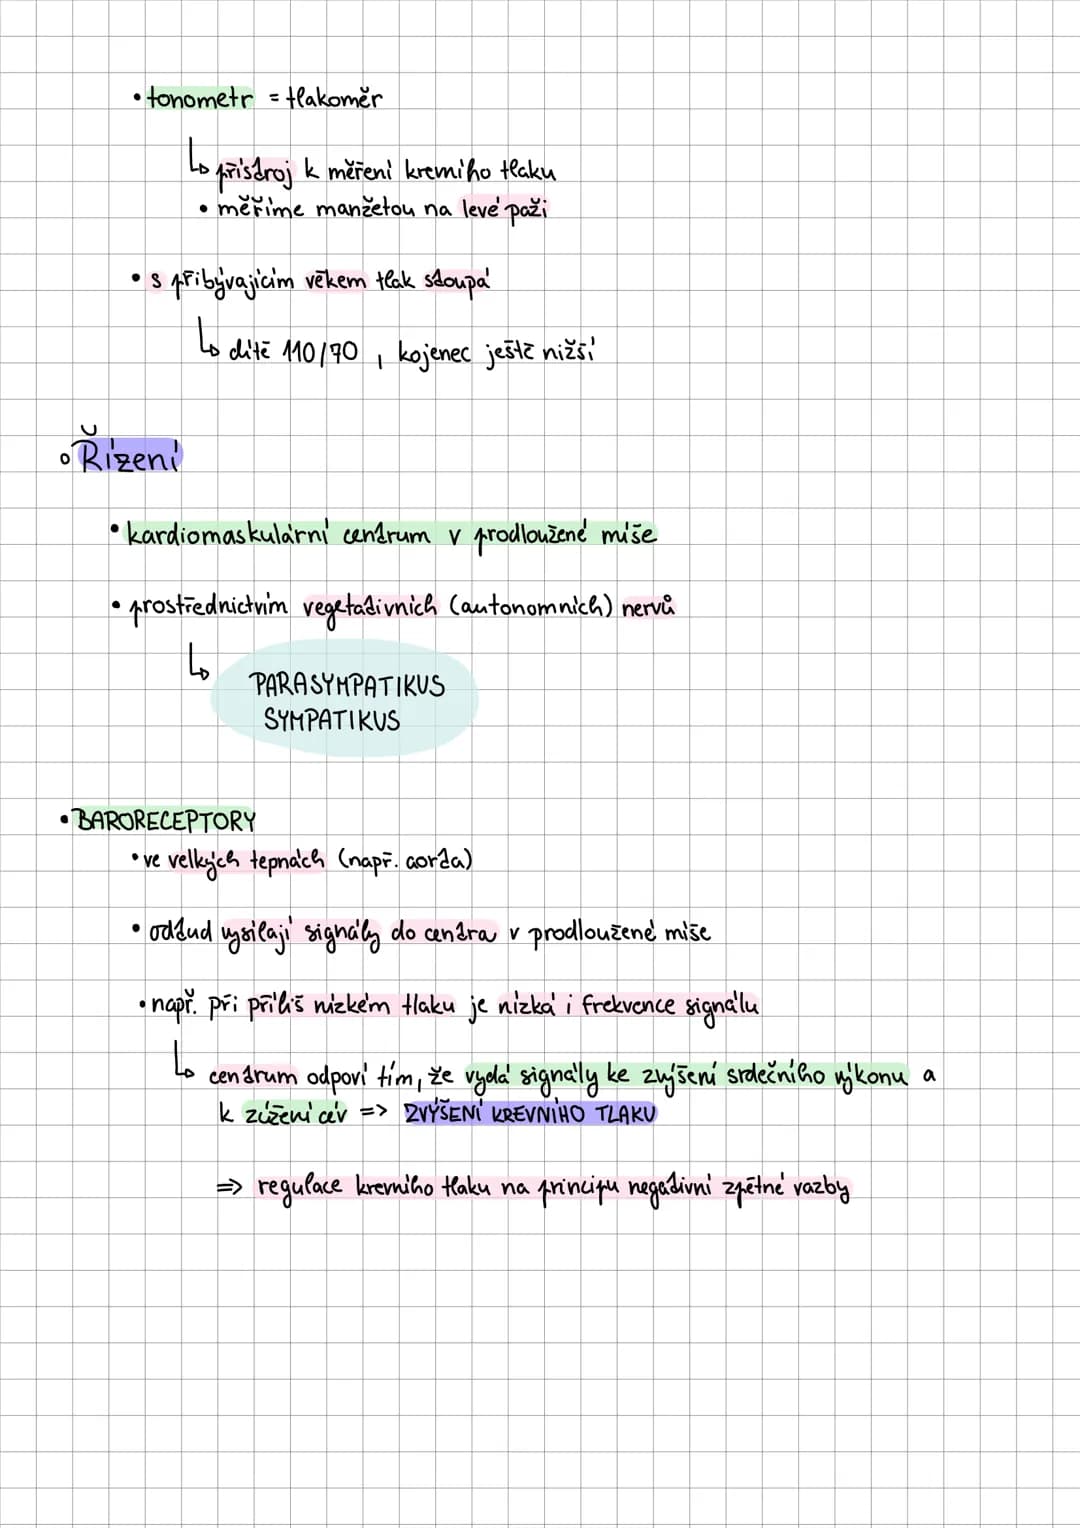 • tonometr = tlakoměr
↳ přístroj k měření krevního tlaku
• měříme manžetou na levé paži
• s přibývajícím věkem tlak stoupá
↳ dítě 110/70 , kojenec ještě nižší
○ Řízení
• kardiomaskulární centrum v prodloužené míše
• prostřednictvím vegetativních (autonomních) nervů
↳ PARASYMPATIKUS
SYMPATIKUS
• BARORECEPTORY
• ve velkých tepnách (např. aorta)
• odtud vysílají signály do centra v prodloužené míše
• např. při příliš nízkém tlaku je nízká i frekvence signálu
↳ centrum odpoví tím, že vydá signály ke zvýšení srdečního výkonu a
k zúžení cév => ZVÝŠENÍ KREVNÍHO TLAKU
=> regulace krevního tlaku na principu negativní zpětné vazby